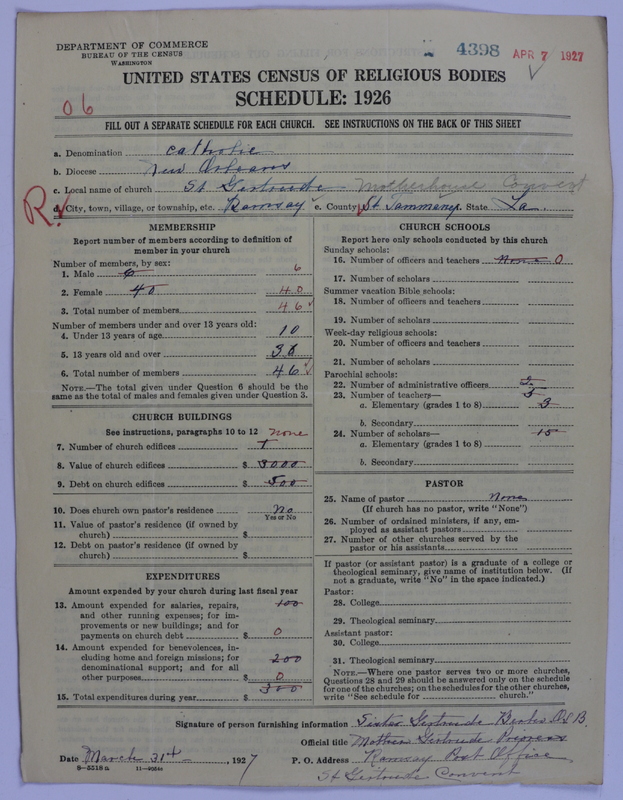 DEPARTMENT OF COMMERCE
BUREAU OF THE CENSUS
WASHINGTON
4398 APR 7 1927
UNITED STATES CENSUS OF RELIGIOUS BODIES
SCHEDULE: 1926
06
FILL OUT A SEPARATE SCHEDULE FOR EACH CHURCH. SEE INSTRUCTIONS ON THE BACK OF THIS SHEET
a. Denomination Catholic
b. Diocese New Orleans
c. Local name of church St Gertrude Motherhouse Convent
R. d. City, town, village, or township, etc. Ramsay e. County St Tammany State La.
MEMBERSHIP
Report number of members according to definition of
member in your church
Number of members, by sex:
1. Male 6 6
2. Female 40 40
3. Total number of members 46
Number of members under and over 13 years old:
4. Under 13 years of age 10
5. 13 years old and over 36
6. Total number of members 46
NOTE.—The total given under Question 6 should be the
same as the total of males and females given under Question 3.
CHURCH BUILDINGS
See instructions, paragraphs 10 to 12 none
7. Number of church edifices 1
8. Value of church edifices $ 3000
9. Debt on church edifices $ 500
10. Does church own pastor's residence No
Yes or No
11. Value of pastor's residence (if owned by
church) $
12. Debt on pastor's residence (if owned by
church) $
EXPENDITURES
Amount expended by your church during last fiscal year
13. Amount expended for salaries, repairs, 100
and other running expenses; for im-
provements or new buildings; and for
payments on church debt $ 0
14. Amount expended for benevolences, in-
cluding home and foreign missions; for 200
denominational support; and for all
other purposes $ 0
15. Total expenditures during year $ 300
CHURCH SCHOOLS
Report here only schools conducted by this church
Sunday schools:
16. Number of officers and teachers None 0
17. Number of scholars
Summer vacation Bible schools:
18. Number of officers and teachers
19. Number of scholars
Week-day religious schools:
20. Number of officers and teachers
21. Number of scholars
Parochial schools:
22. Number of administrative officers 2
23. Number of teachers— 5
a. Elementary (grades 1 to 8) 3
b. Secondary
24. Number of scholars— 15
a. Elementary (grades 1 to 8)
b. Secondary
PASTOR
25. Name of pastor None
(If church has no pastor, write "None")
26. Number of ordained ministers, if any, em-
ployed as assistant pastors
27. Number of other churches served by the
pastor or his assistants
If pastor (or assistant pastor) is a graduate of a college or
theological seminary, give name of institution below. (If
not a graduate, write "No" in the space indicated.)
Pastor:
28. College
29. Theological seminary
Assistant pastor:
30. College
31. Theological seminary
NOTE.—Where one pastor serves two or more churches,
Questions 28 and 29 should be answered only on the schedule
for one of the churches; on the schedules for the other churches,
write "See schedule for church."
Signature of person furnishing information Sister Gertrude O.S.B.
Official title Mother Gertrude Prioress
Date March 31st, 1927 P. O. Address Ramsay Post Office
8—5518 a 11—9064s St Gertrude Convent